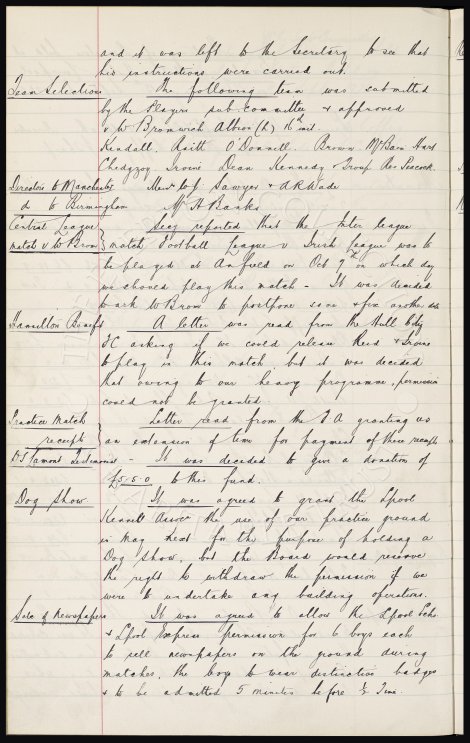 and it was left to the Secretary to see that
his instructions were carried out.
Team Selection The following team was submitted
by the Players sub. committee & approved
v W Bromwich Albion (h) 16th inst.
Kendall, Raitt O'Donnell. Brown McBain Hart
Chedgzoy Irvine Dean Kennedy & Troup Res Peacock.
Directors to Manchester Messrs W J Sawyer & A R Wade
do to Birmingham Mr H Banks
Central League Secy reported that the Inter league
match v W Brom match Football League v Irish League was to
be played at Anfield on Oct 9th on which day
we should play this match - It was decided
to ask W Brom to postpone same & fix another date
Hamilton Benefit A letter was read from the Hull City
FC asking if we could release Reid & Irvine
to play in this match, but it was decided
that owing to our heavy programme, permission
could not be granted.
Practice Match Letter read from the F A granting us
receipts an extension of time for payment of these receipts
Testimonial - It was decided to give a donation of
£5.5.0 to this fund.
Dog Show It was agreed to grant the Lpool
Kennel Assocn the use of our practice ground
in May next for the purpose of holding a
Dog Show, but the Board would reserve
the right to withdraw the permission if we
were to undertake any building operations.
Sale of Newspapers It was agreed to allow the Lpool Echo
& Lpool Express permission for 6 boys each
to sell newspapers on the ground during
matches, the boys to wear distinctive badges
& to be admitted 5 minutes before ½ Time.